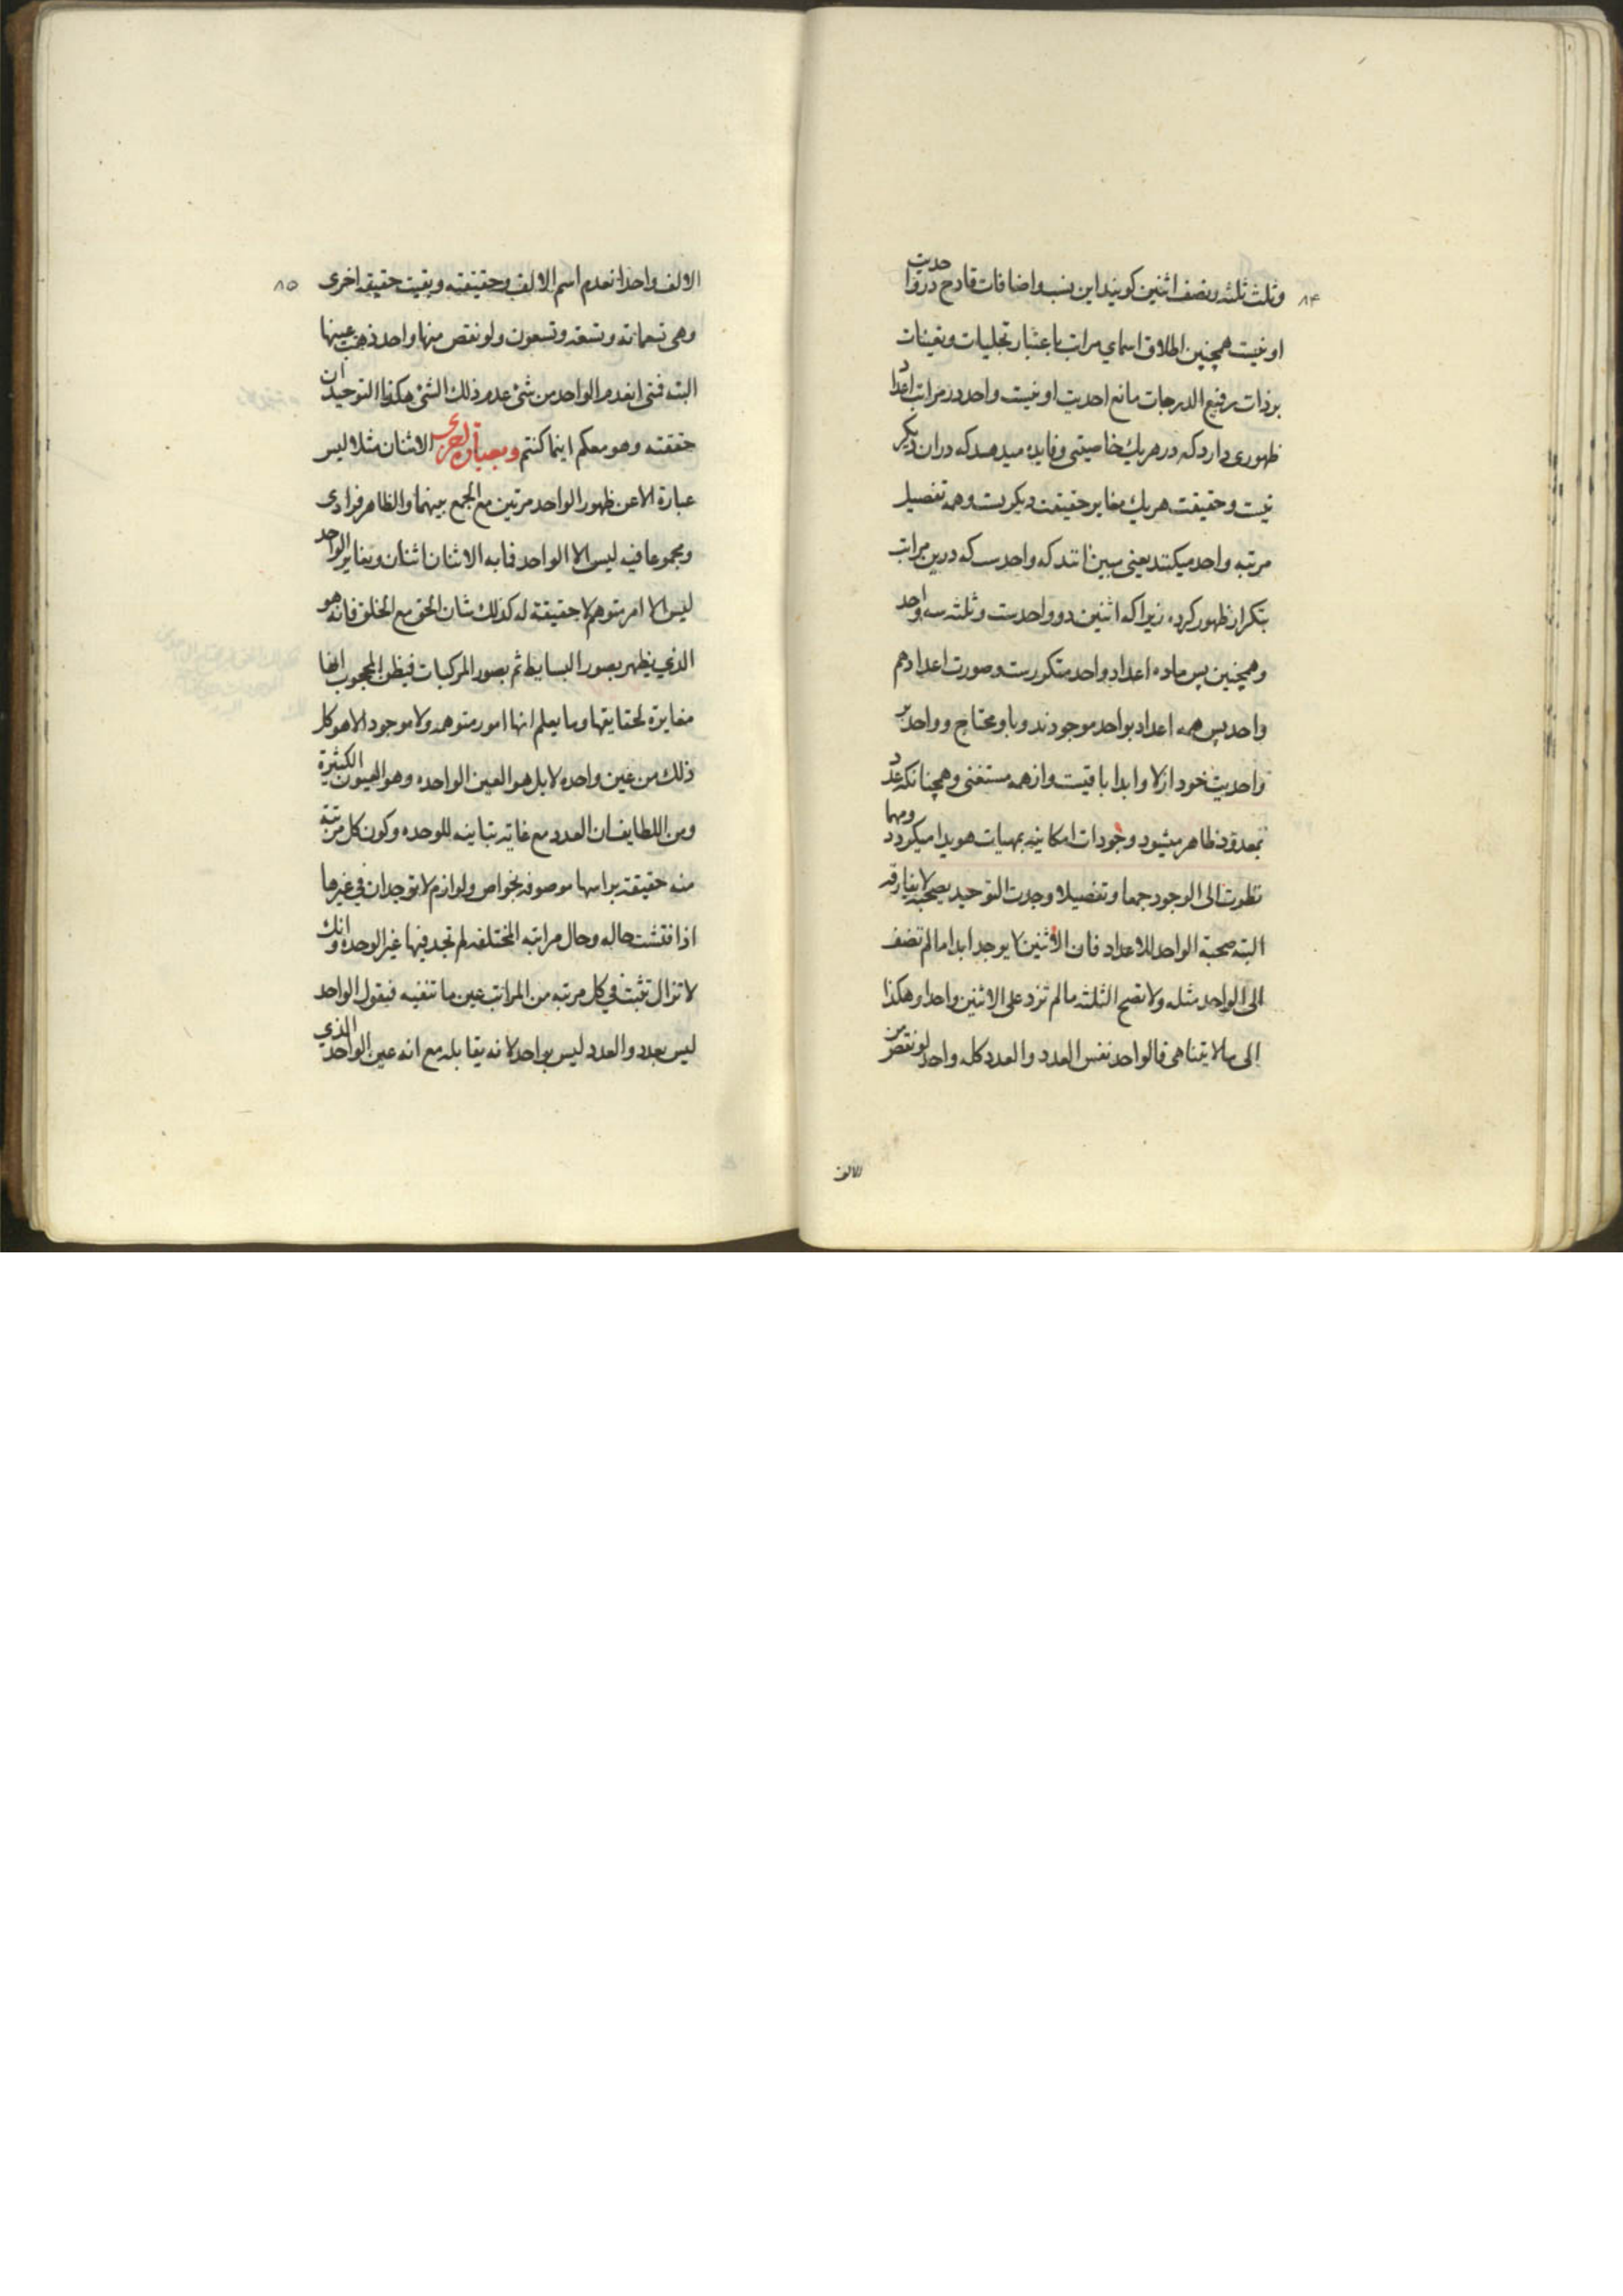 ۸۴
وثلث ثلثه ونصف اثنین کویند این نسب واضافات قادح در واحدیت
او نیست همچنین اطلاق اسمای مراتب باعتبار تجلیات وتعینات
بر ذات رفیع الدرجات مانع احدیت او نیست واحد در مراتب اعداد
ظهوری دارد که در هر یك خاصیتی وفایده میدهد که در ان دیکر
نیست وحقیقت هر یك مغایر حقیقت دیکرست وهمه تفصیل
مرتبه واحد میکنند یعنی مبین انند که واحدست که درین مراتب
بتکرار ظهور کرده زیرا که اثنین دو واحدست وثلثه سه واحد
وهمچنین پس ماده اعداد واحد متکررست وصورت اعداد هم
واحد پس همه اعداد بواحد موجودند وباو محتاج وواحد بر
واحدیت خود ازلا وابدا باقیست واز همه مستغنی وهمچنانکه عدد
بمعدود ظاهر میشود وجودات امکانیه بمهیات هویدا میکردد ومهما
نظرت الی الوجود جمعا وتفصیلا وجدت التوحید یصحبه لا یفارقه
البته صحبة الواحد للاعداد فان الاثنین لا یوجد ابدا ما لم تضف
الی الواحد مثله ولا تصح الثلثه ما لم تزد علی الاثنین واحدا وهکذا
الی ما لا یتناهی فالواحد نفس العدد والعدد کله واحد لو نقص من
الالف
۸۵
الالف واحدا نعدم اسم الالف وحقیقته وبقیت حقیقه اخری
وهی تسعمائه وتسعه وتسعون ولو نقص منها واحد ذهبت عینها
البته فمتی انعدم الواحد من شئ عدم ذلك الشئ هکذا التوحید ان
حققته وهو معکم اینما کنتم وبعبارة اخری الاثنان مثلا لیس
عبارة الا عن ظهور الواحد مرتین مع الجمع بینهما والظاهر فرادی
ومجموعا فیه لیس الا الواحد فما به الاثنان اثنان ویغایر الواحد
لیس الا امر متوهم لا حقیقة له کذلك شان الحق مع الخلق فانه هو
الذی یظهر بصور البسایط ثم بصور المرکبات فیظن المحجوب انها
مغایرة لحقایقها وما یعلم انها امور متوهمه ولا موجود الا هو کل
ذلك من عین واحده لا بل هو العین الواحده وهو العیون الکثیرة
ومن اللطایف ان العدد مع غایة تباینه للوحده وکون کل مرتبة
منه حقیقة براسها موصوفه بخواص ولوازم لا توجدان فی غیرها
اذا فتشت حاله وحال مراتبه المختلفه لم تجد فیها غیر الوحده وانك
لا تزال تثبت فی کل مرتبه من المراتب عین ما تنفیه فیقول الواحد
لیس بعدد والعدد لیس بواحد لانه یقابله مع انه عین الواحد الذی